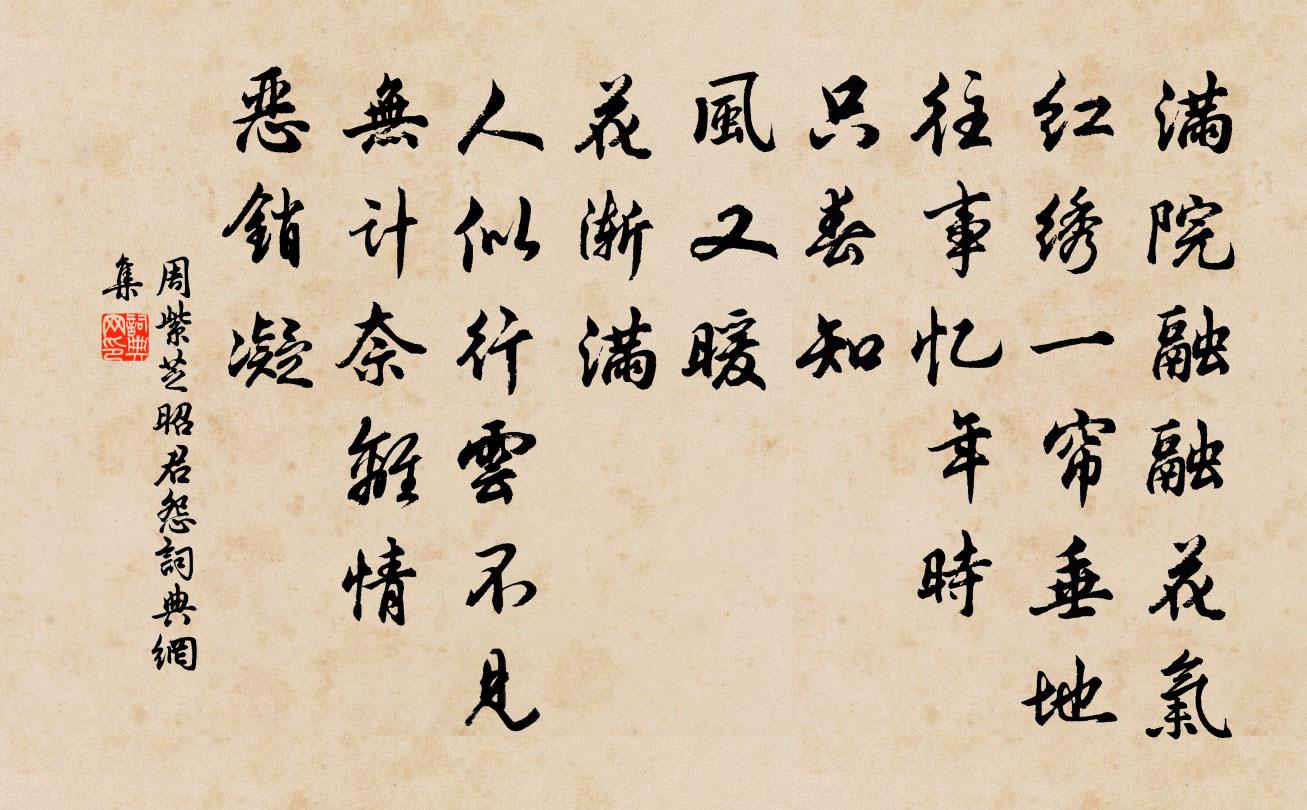 满院融融花氣
红绣一帘垂地
往事忆年時
只春知
風又暖
花渐满
人似行雲不見
無计奈離情
恶銷凝
周紫芝昭君怨詞典網
集
詞典
网印